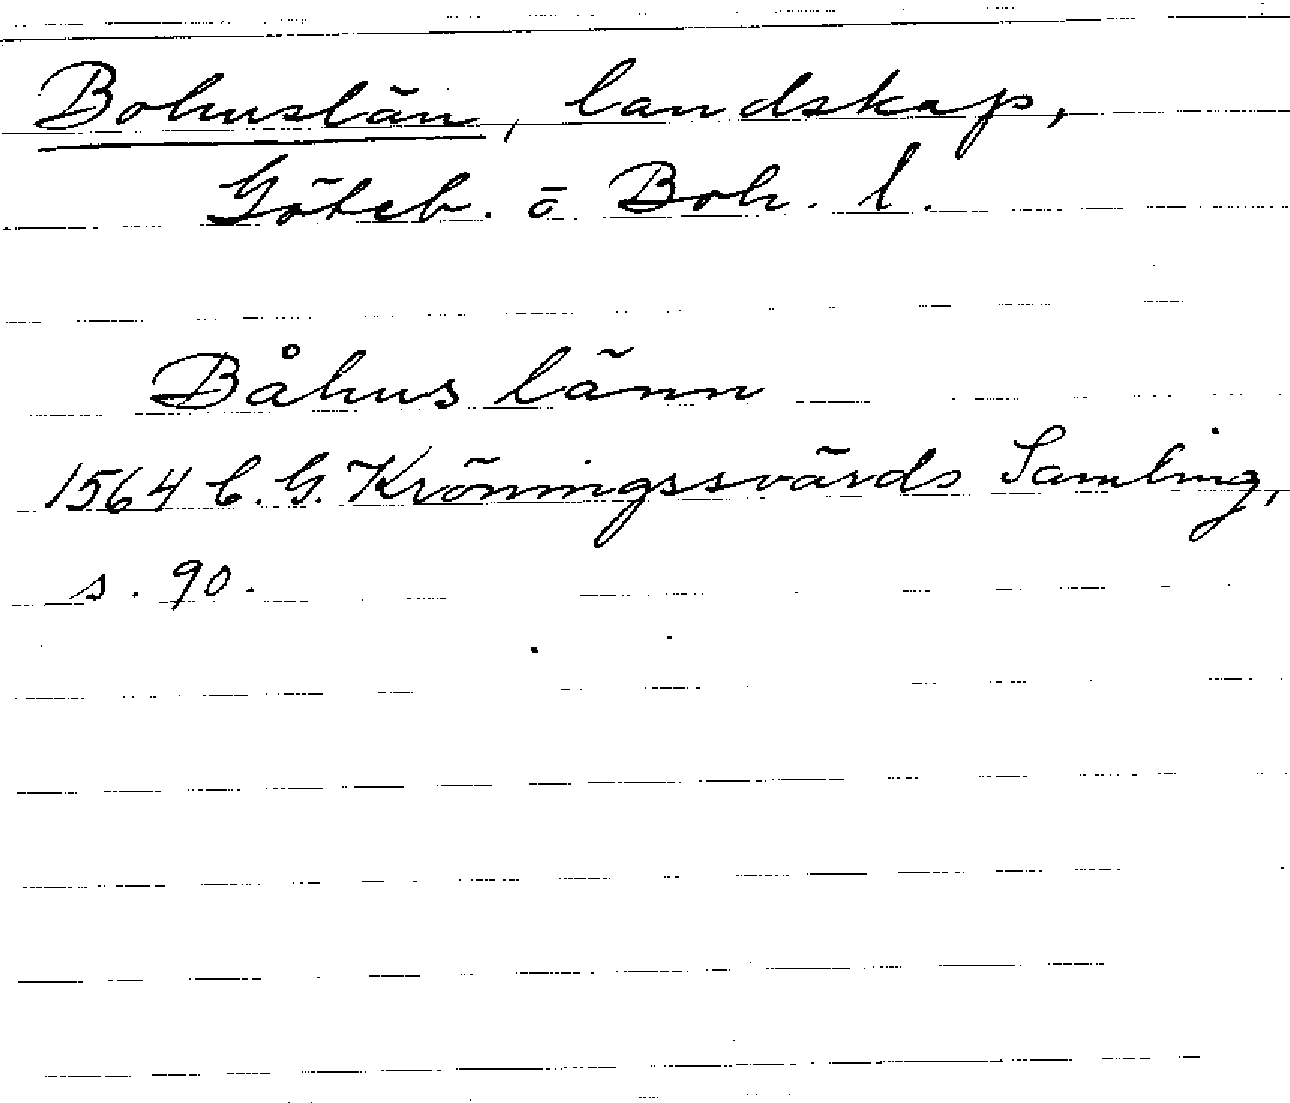 Bohuslän, landskap,
Göteb. o Boh. l.
Båhus länn
1564 C. G. Kröningssvärds Samling,
s. 90.